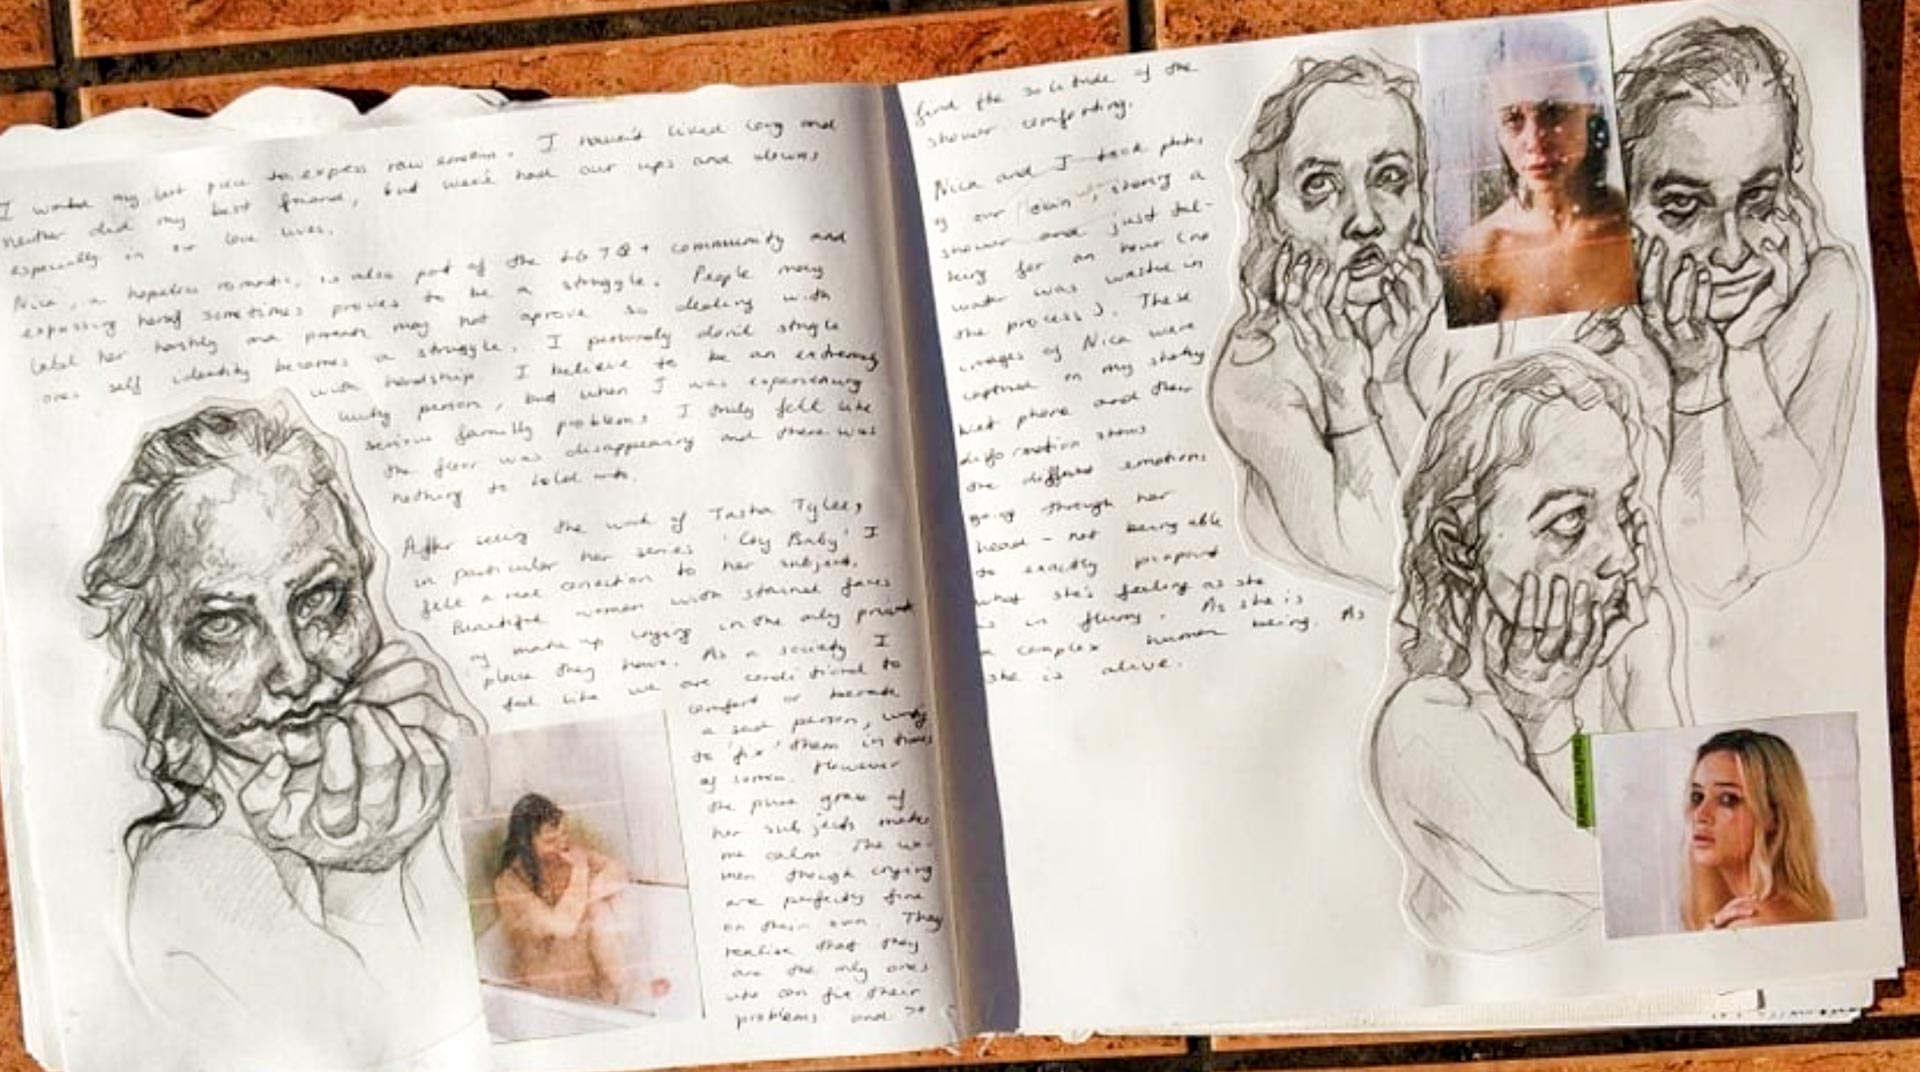 I wanted my last piece to express raw emotion. I haven't lived long and
neither did my best friend, but we've had our ups and downs
especially in our love lives.
Nica, a hopeless romantic, is also part of the LGTQ+ community and
expressing herself sometimes proves to be a struggle. People may
label her harshly and parents may not aprove so dealing with
ones self identity becomes a struggle. I personaly don't stugle
with hardship. I believe to be an extremely
lucky person, but when I was experiencing
serious familly problems I truly felt like
the floor was disappearing and there was
nothing to hold onto.
After seeing the work of Tasha Tylee,
in particular her series 'Cry Baby' I
felt a real conection to her subject.
Beautiful women with stained faces
of make up crying in the only private
place they have. As a society I
feel like we are conditional to
comfort or berate
a sad person, why
to 'fix' them in times
of sorrow. However
the pure grace of
her subjects makes
me calm. The wo-
men though crying
are perfectly fine
on their own. They
realise that they
are the only ones
who can fix their
problems and so
find the solitude of the
shower comforting.
Nica and I took photos
of our own, staring a
shower and just tal-
king for an hour (no
water was wasted in
the process). These
images of Nica were
captured on my shaky
wet phone and their
deformation shows
the different emotions
going through her
head - not being able
to exactly pinpoint
what she's feeling as she
is in flurry. As she is
a complex human being. As
she is alive.